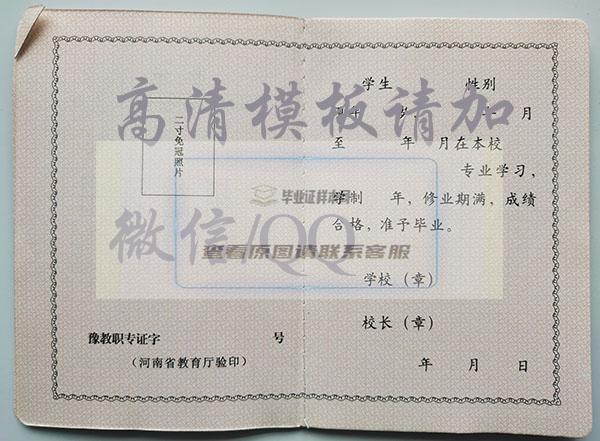 二寸免冠照片
豫教职专证字 号
(河南省教育厅验印)
学生 性别
现年 岁, 年 月
至 年 月在本校
专业学习,
学制 年,修业期满,成绩
合格,准予毕业。
学校(章)
校长(章)
年 月 日
高清模板请加
微信/QQ
毕业证样本网
查看原图请联系客服